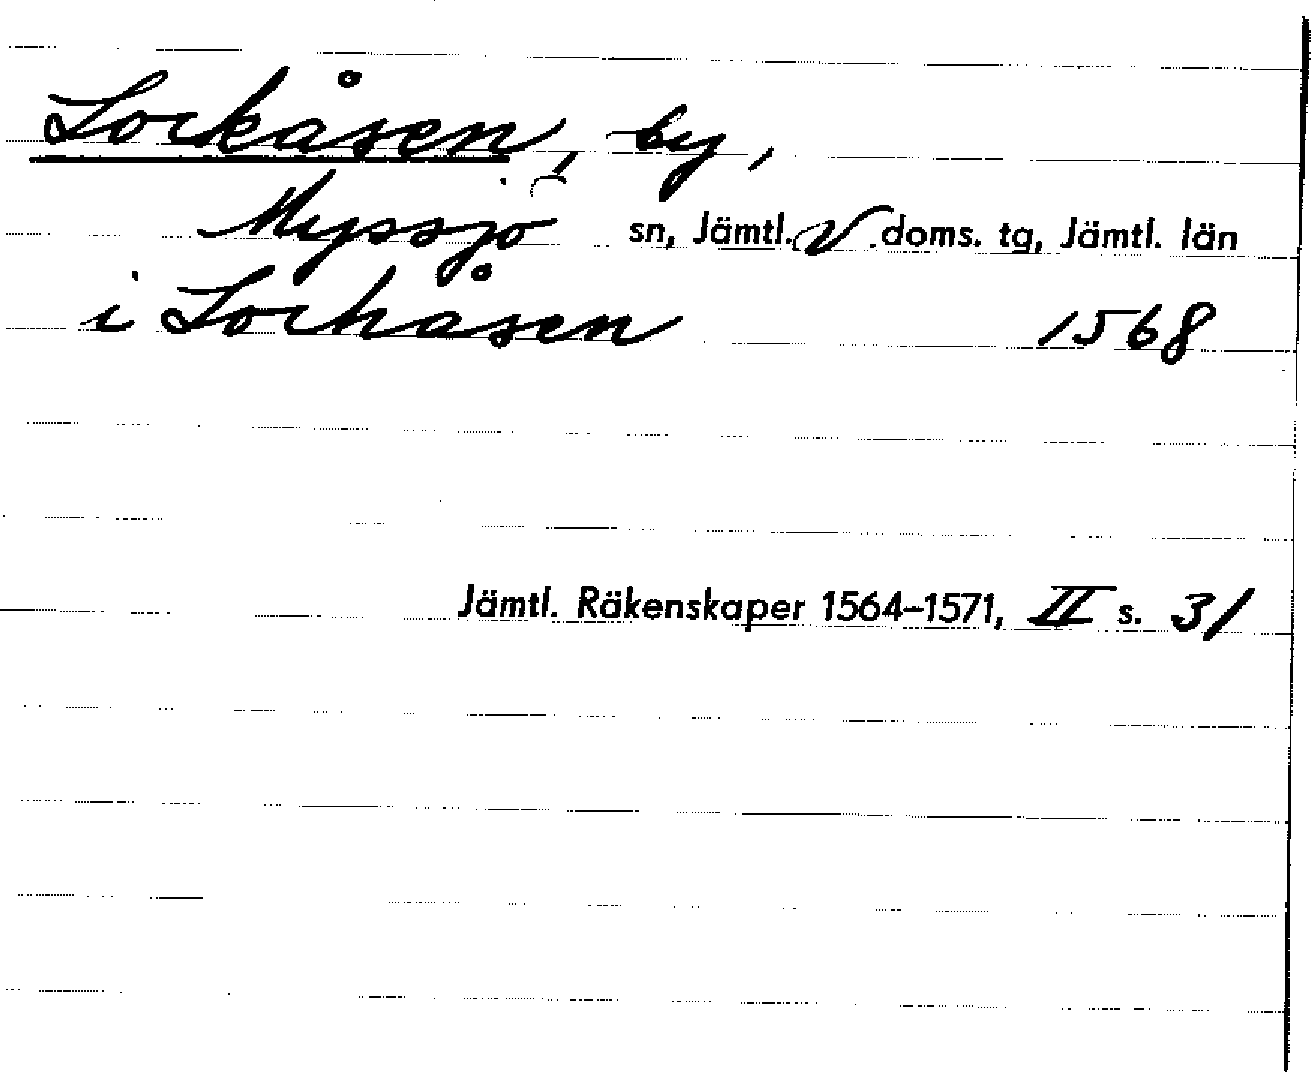 Lockåsen, by,
Myssjö sn, Jämtl. V doms. tg, Jämtl. län
i Lochåsen 1568
Jämtl. Räkenskaper 1564–1571, II s. 31